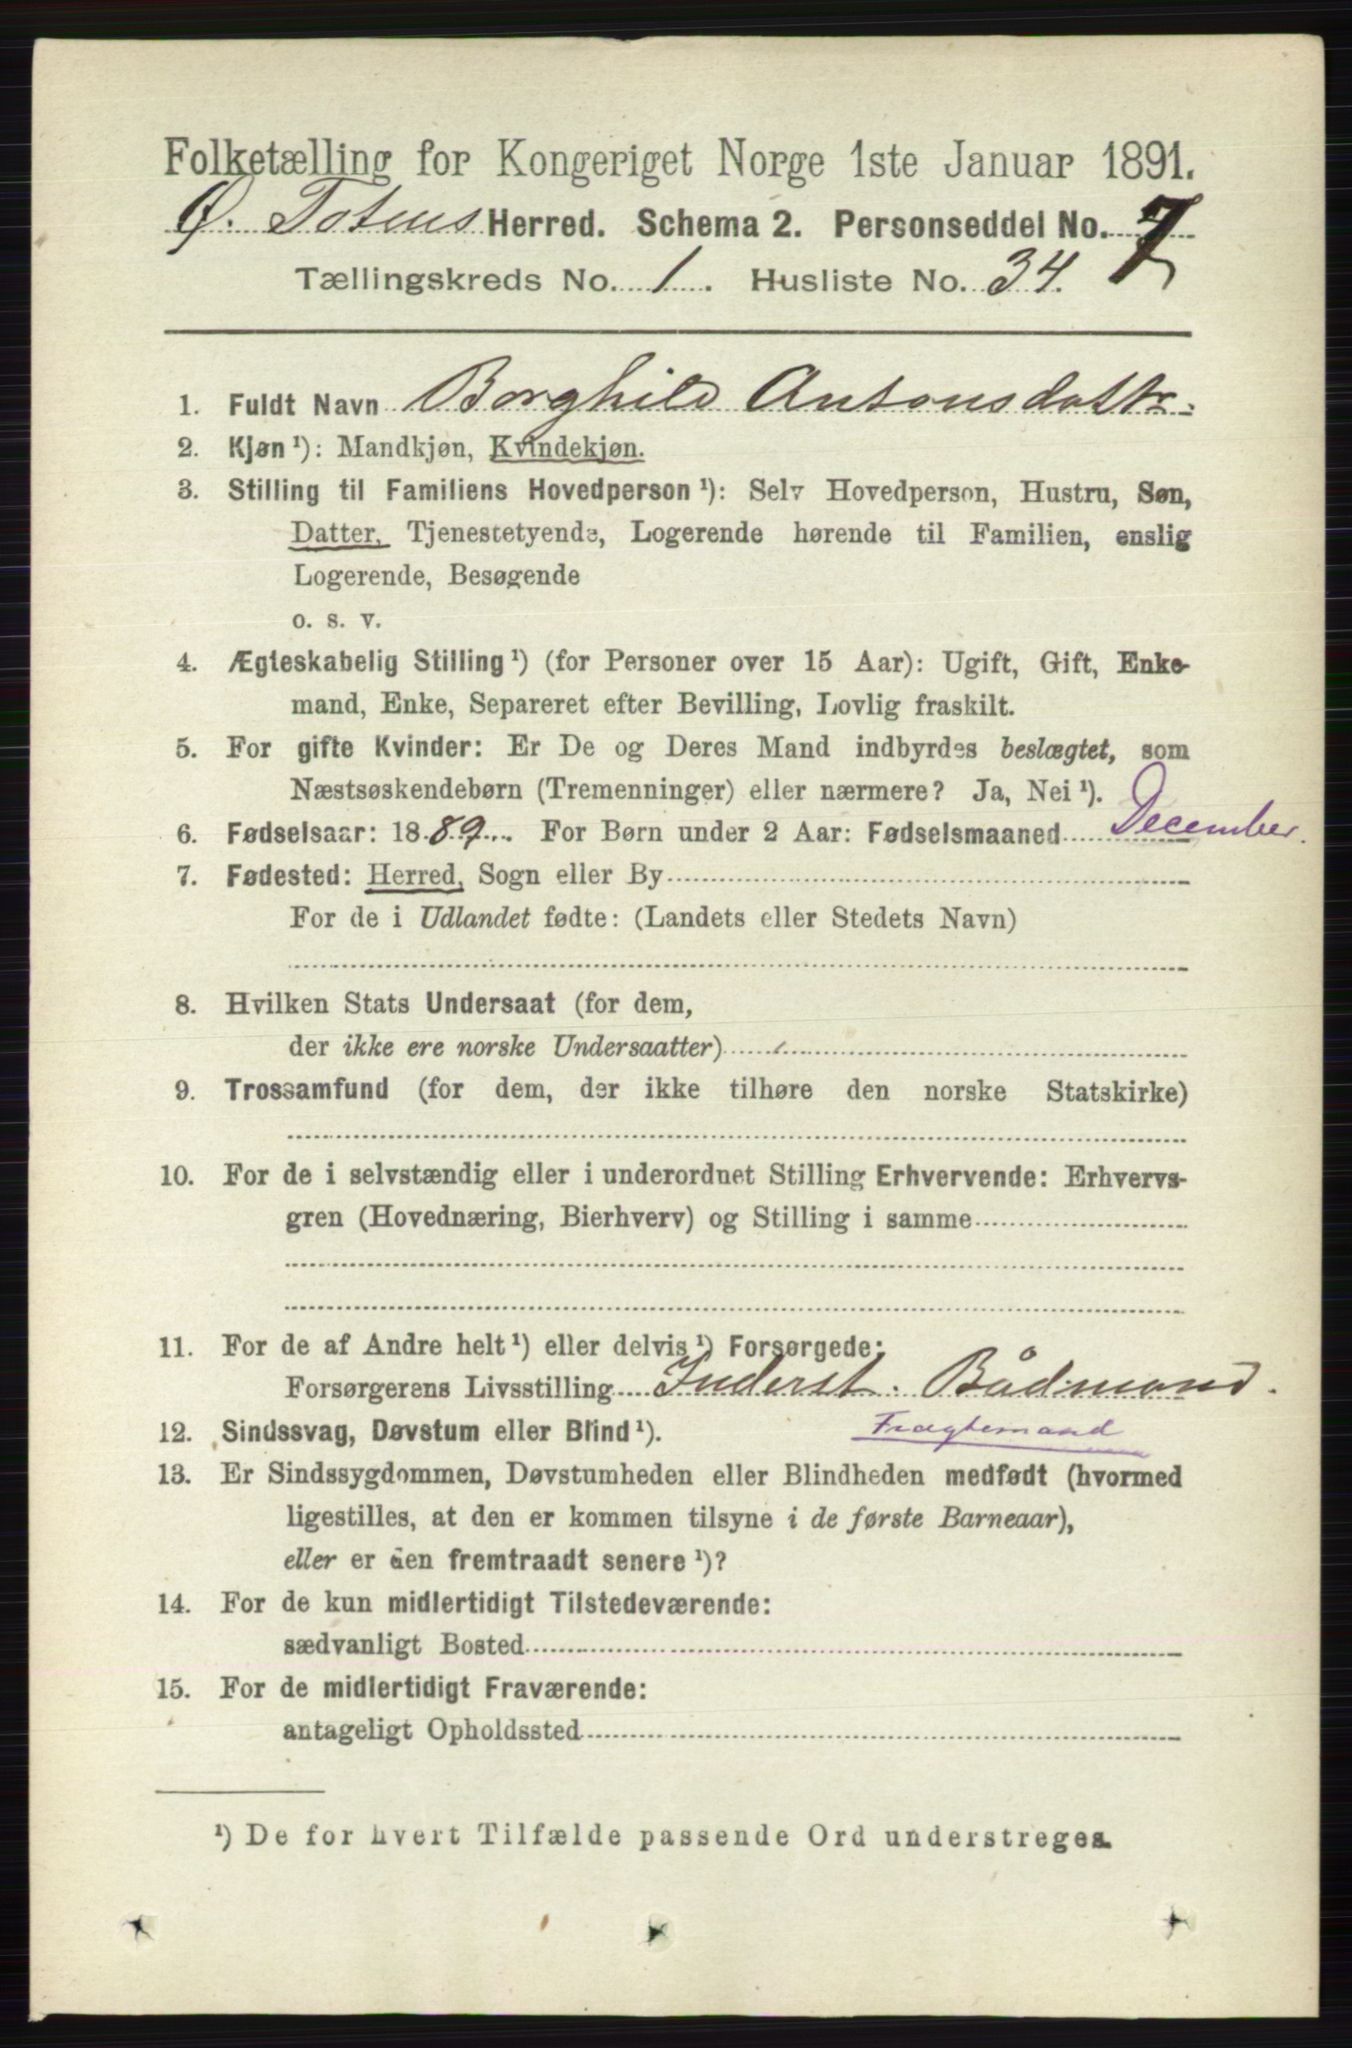 Folketælling for Kongeriget Norge 1ste Januar 1891.
Ø. Totens Herred. Schema 2. Personseddel No. 7
Tællingskreds No. 1. Husliste No. 34.
1. Fuldt Navn Borghild Antonsdattr.
2. Kjøn ¹): Mandkjøn, Kvindekjøn.
3. Stilling til Familiens Hovedperson ¹): Selv Hovedperson, Hustru, Søn,
Datter, Tjenestetyende, Logerende hørende til Familien, enslig
Logerende, Besøgende
o. s. v.
4. Ægteskabelig Stilling ¹) (for Personer over 15 Aar): Ugift, Gift, Enke-
mand, Enke, Separeret efter Bevilling, Lovlig fraskilt.
5. For gifte Kvinder: Er De og Deres Mand indbyrdes beslægtet, som
Næstsøskendebørn (Tremenninger) eller nærmere? Ja, Nei ¹).
6. Fødselsaar: 1889. For Børn under 2 Aar: Fødselsmaaned December.
7. Fødested: Herred, Sogn eller By
For de i Udlandet fødte: (Landets eller Stedets Navn)
8. Hvilken Stats Undersaat (for dem,
der ikke ere norske Undersaatter)
9. Trossamfund (for dem, der ikke tilhøre den norske Statskirke)
10. For de i selvstændig eller i underordnet Stilling Erhvervende: Erhvervs-
gren (Hovednæring, Bierhverv) og Stilling i samme
11. For de af Andre helt ¹) eller delvis ¹) Forsørgede:
Forsørgerens Livsstilling Inderst. Bådmand.
Fragtemand
12. Sindssvag, Døvstum eller Blind ¹).
13. Er Sindssygdommen, Døvstumheden eller Blindheden medfødt (hvormed
ligestilles, at den er kommen tilsyne i de første Barneaar),
eller er den fremtraadt senere ¹)?
14. For de kun midlertidigt Tilstedeværende:
sædvanligt Bosted
15. For de midlertidigt Fraværende:
antageligt Opholdssted
¹) De for hvert Tilfælde passende Ord understreges.